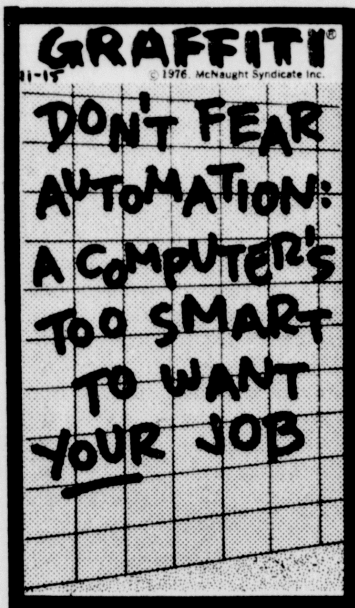 GRAFFITI®
11-15
© 1976. McNaught Syndicate Inc.
DON'T FEAR
AUTOMATION:
A COMPUTER'S
TOO SMART
TO WANT
YOUR JOB